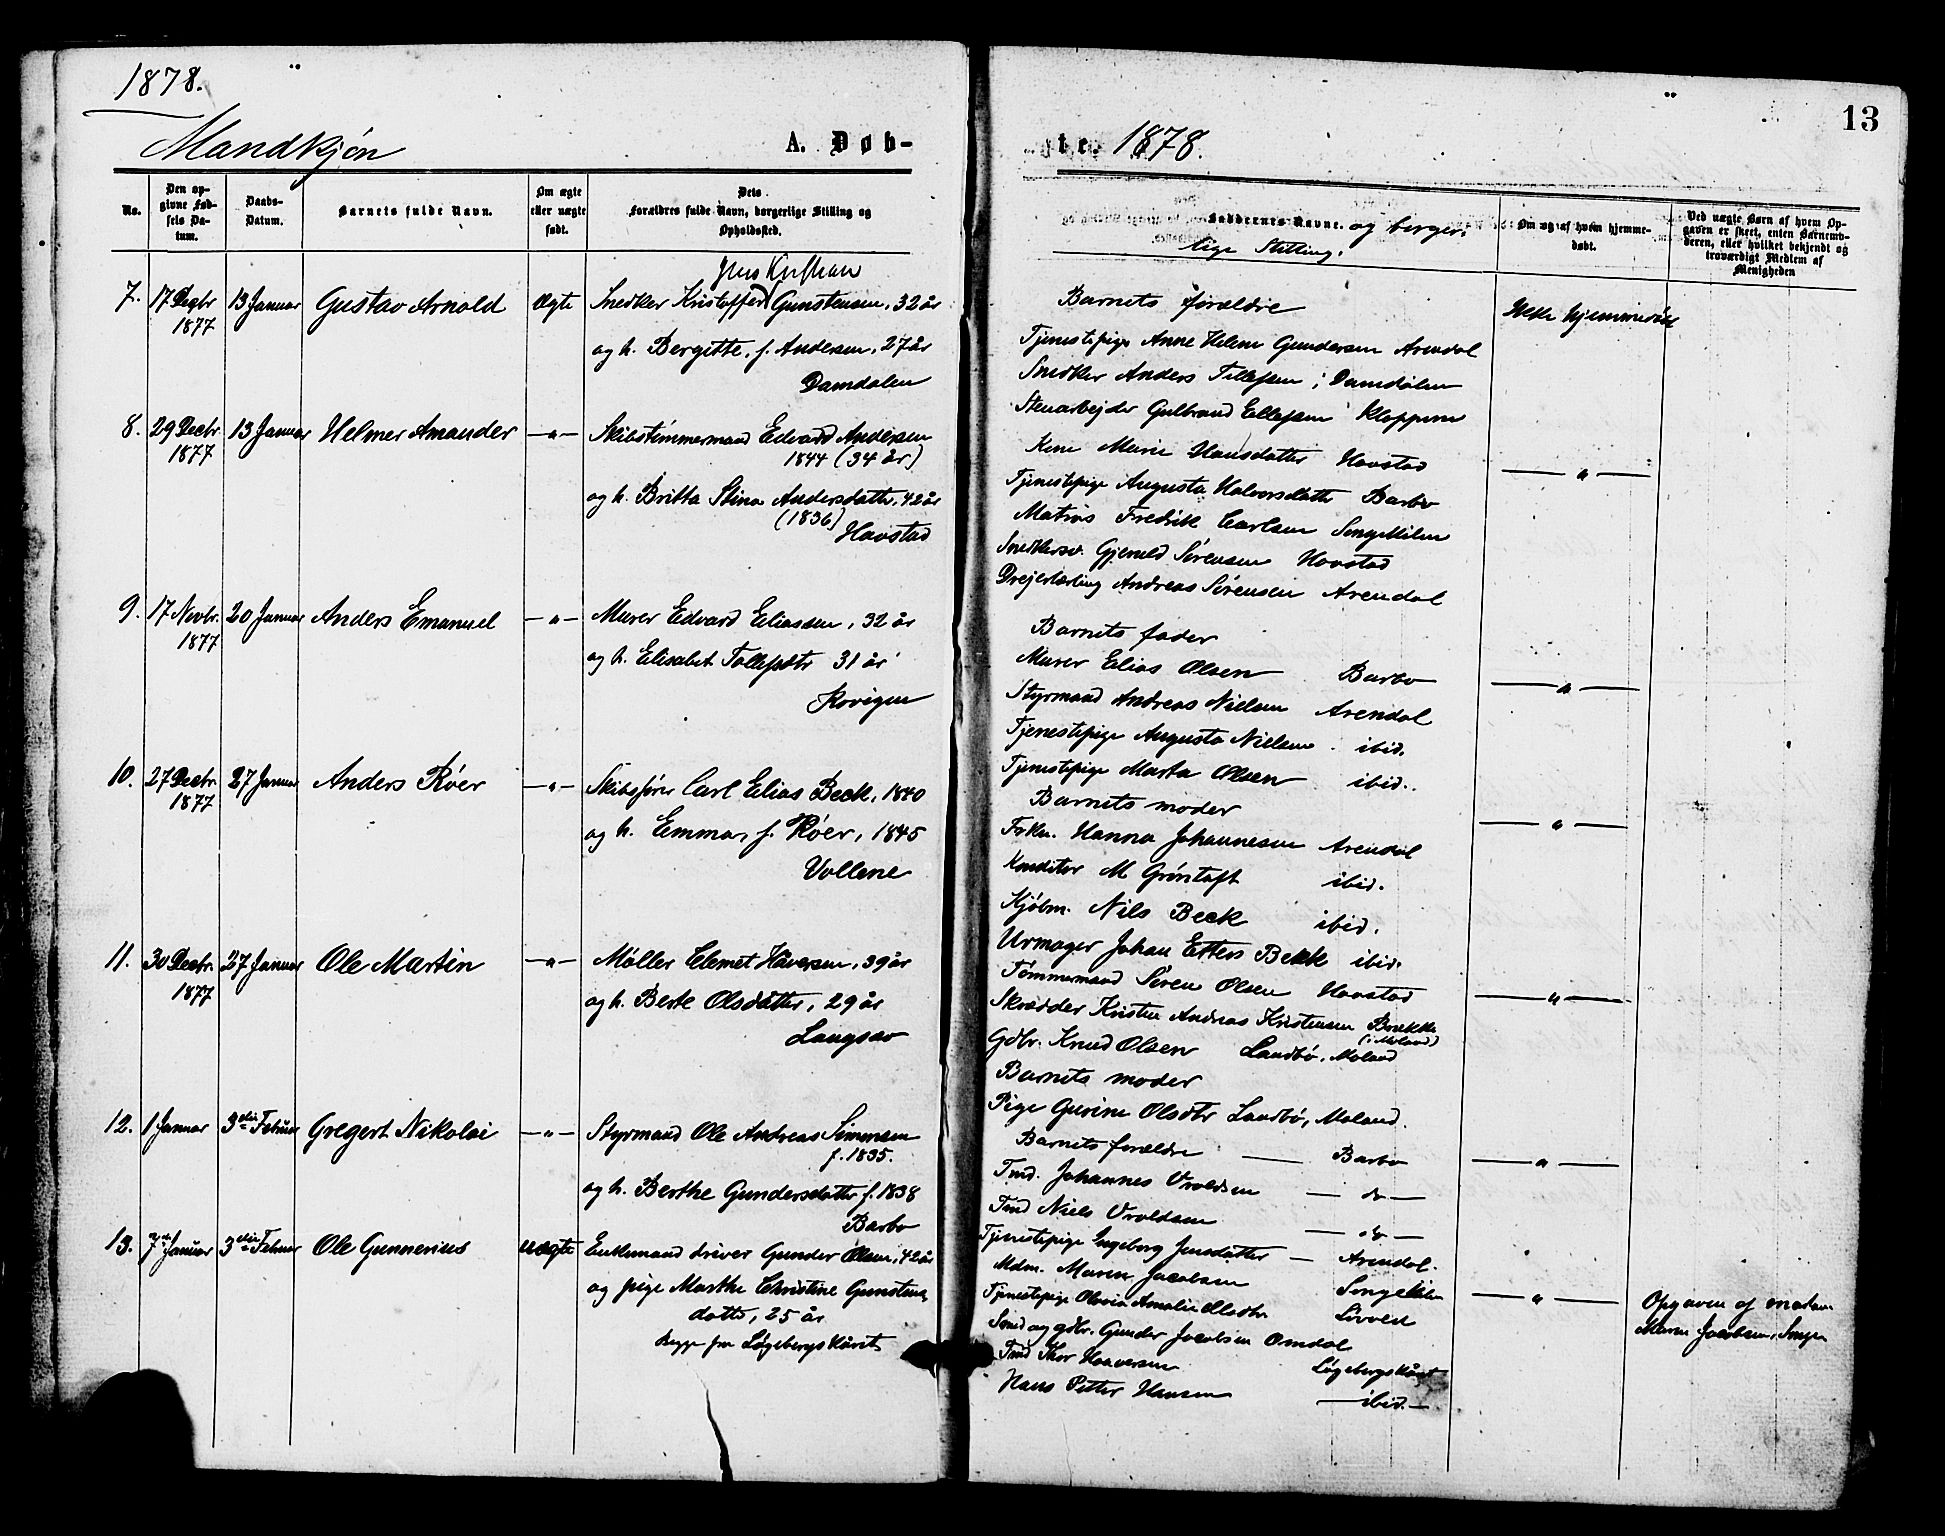 1878.
Mandkjøn
A. Døb-
No.
Den op-
givne Fød-
sels Da-
tum.
Daabs-
Datum.
Barnets fulde Navn.
Om ægte
eller uægte
født.
Dets
Forældres fulde Navn, borgerlige Stilling og
Opholdssted.
7. 17 Decbr 13 Januar Gustav Arnold Ægte Snedker Kristoffer Gunstensen, 32 år
1877
og h. Bergitte, f. Andersen, 27 år
Damdalen
8. 29 Decbr 13 Januar Helmer Amander —"— Skibstømmermand Edvard Andersen
1877 1844 (34 år)
og h. Britta Stina Andersdatter, 42 år
(1836)
Havstad
9. 17 Novbr. 20 Januar Anders Emanuel —"— Murer Edvard Eliassen, 32 år
1877
og h. Elisabet Tollefsdtr 31 år
Kovigen
10. 27 Decbr. 27 Januar Anders Röer —"— Skibsfører Carl Elias Beck, 1840
1877
og h. Emma, f. Röer, 1845
Vollene
11. 30 Decbr. 27 Januar Ole Martin —"— Møller Clemet Håversen, 39 år
1877
og h. Berte Olsdatter, 29 år
Langsæv
12. 1 Januar 3die Februar Gregert Nikolai —"— Styrmand Ole Andreas Simonsen
f. 1835.
og h. Berthe Gundersdatter f. 1838
Barbo
13. 7de Januar 3die Februar Ole Gunnerius Uægte Enkemand driver Gunder Olsen, 42 år
og pige Marthe Christine Gunstens
datter, 25 år
Begge fra Løgebergskåret
13
te. 1878.
Faddernes Navne. og borger-
lige Stilling.
Om og af hvem hjemme-
døbt.
Ved uægte Børn af hvem Op-
gaven er skeet, enten Barnemo-
deren, eller hvilket bekjendt og
troværdigt Medlem af
Menigheden
Barnets forældre Ikke hjemmedøbt
Tjenestepige Anne Helene Gundersen Arendal
Snedker Anders Tellefsen i Damdalen
Stenarbejder Gulbrand Ellefsen Kloppene
Kone Marie Hansdatter Havstad —"—
Tjenestepige Augusta Halvorsdatter Barbo
Matros Fredrik Carlsen Songekilen
Snedkersv. Gjerulf Sørensen Havstad
Drejerlærling Andreas Sørensen Arendal
Barnets fader
Murer Elias Olsen Barbo —"—
Styrmand Andreas Nielsen Arendal
Tjenestepige Augusta Nielsen ibid.
Tjenestepige Marta Olsen ibid.
Barnets moder
Frkn. Hanna Johannesen Arendal —"—
Konditor M Gröntoft ibid.
Kjöbm. Nils Beck ibid.
Urmager Johan Beck ibid.
Tømmermand Søren Olsen Havstad
Skrædder Kristen Andreas Kristensen Brække —"—
(i Moland)
Gdbr. Knud Olsen Landbö, Moland
Barnets moder
Pige Gurine Olsdtr Landbö, Moland.
Barnets forældre — Barbo
Tmd. Johannes Vroldsen — do — —"—
Tmd Niels Vroldsen — do —
Tjenestepige Ingeborg Jensdatter — Arendal.
Mdm. Maren Jacobsen Songekilen
Tjenestepige Olevia Amalie Olsdtr —"— Opgaven af madam
Smed og gdbr. Gunder Jacobsen Omdal Maren Jacobsen, Songe
Tmd Thor Haaversen Løgebergskåret
Hans Petter Hansen — ibid. —